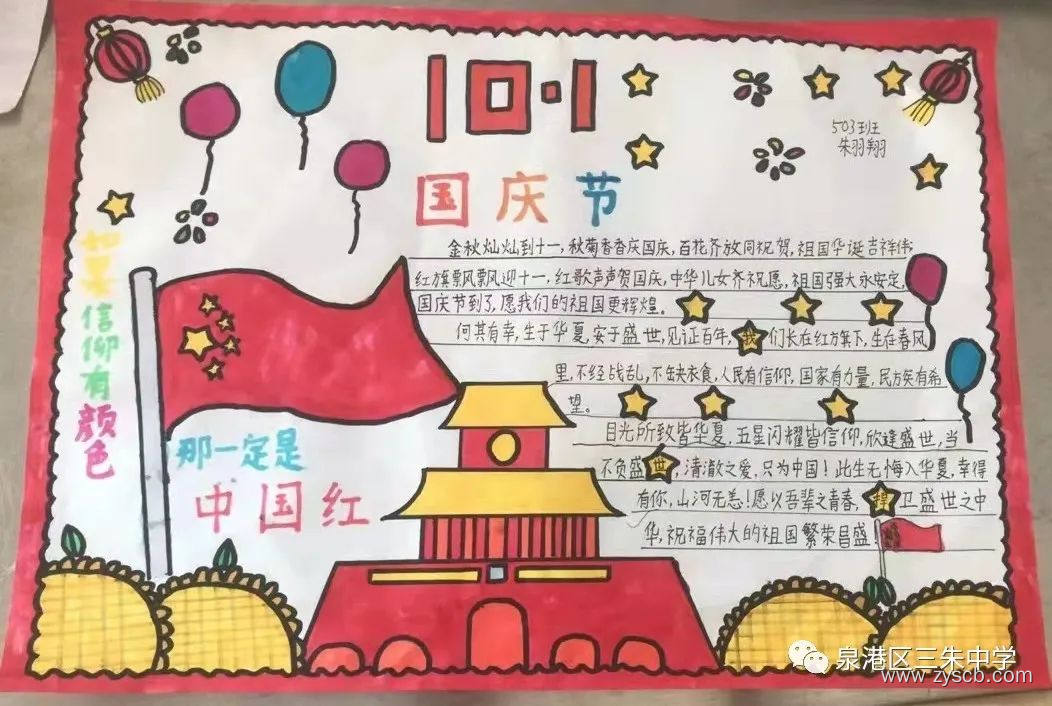 10·1
503班
朱羽翔
国庆节
金秋灿灿到十一,秋菊香香庆国庆,百花齐放同祝贺,祖国华诞吉祥伟
红旗票风票风迎十一,红歌声声贺国庆,中华儿女齐祝愿,祖国强大永安定,
国庆节到了,愿我们的祖国更辉煌。
何其有幸,生于华夏,安于盛世,见证百年,我们长在红方旗下,生在春风
里,不经战乱,不缺衣食,人民有信仰,国家有力量,民族有希
望。
目光所致皆华夏,五星闪耀皆信仰,欣逢盛世,当
不负盛世,清澈之爱,只为中国!此生无悔入华夏,幸得
有你,山河无恙!愿以吾辈之青春,捍卫盛世之中
华,祝福伟大的祖国繁荣昌盛!
如果信仰有颜色
那一定是
中国红
泉港区三朱中学
www.zyscb.com